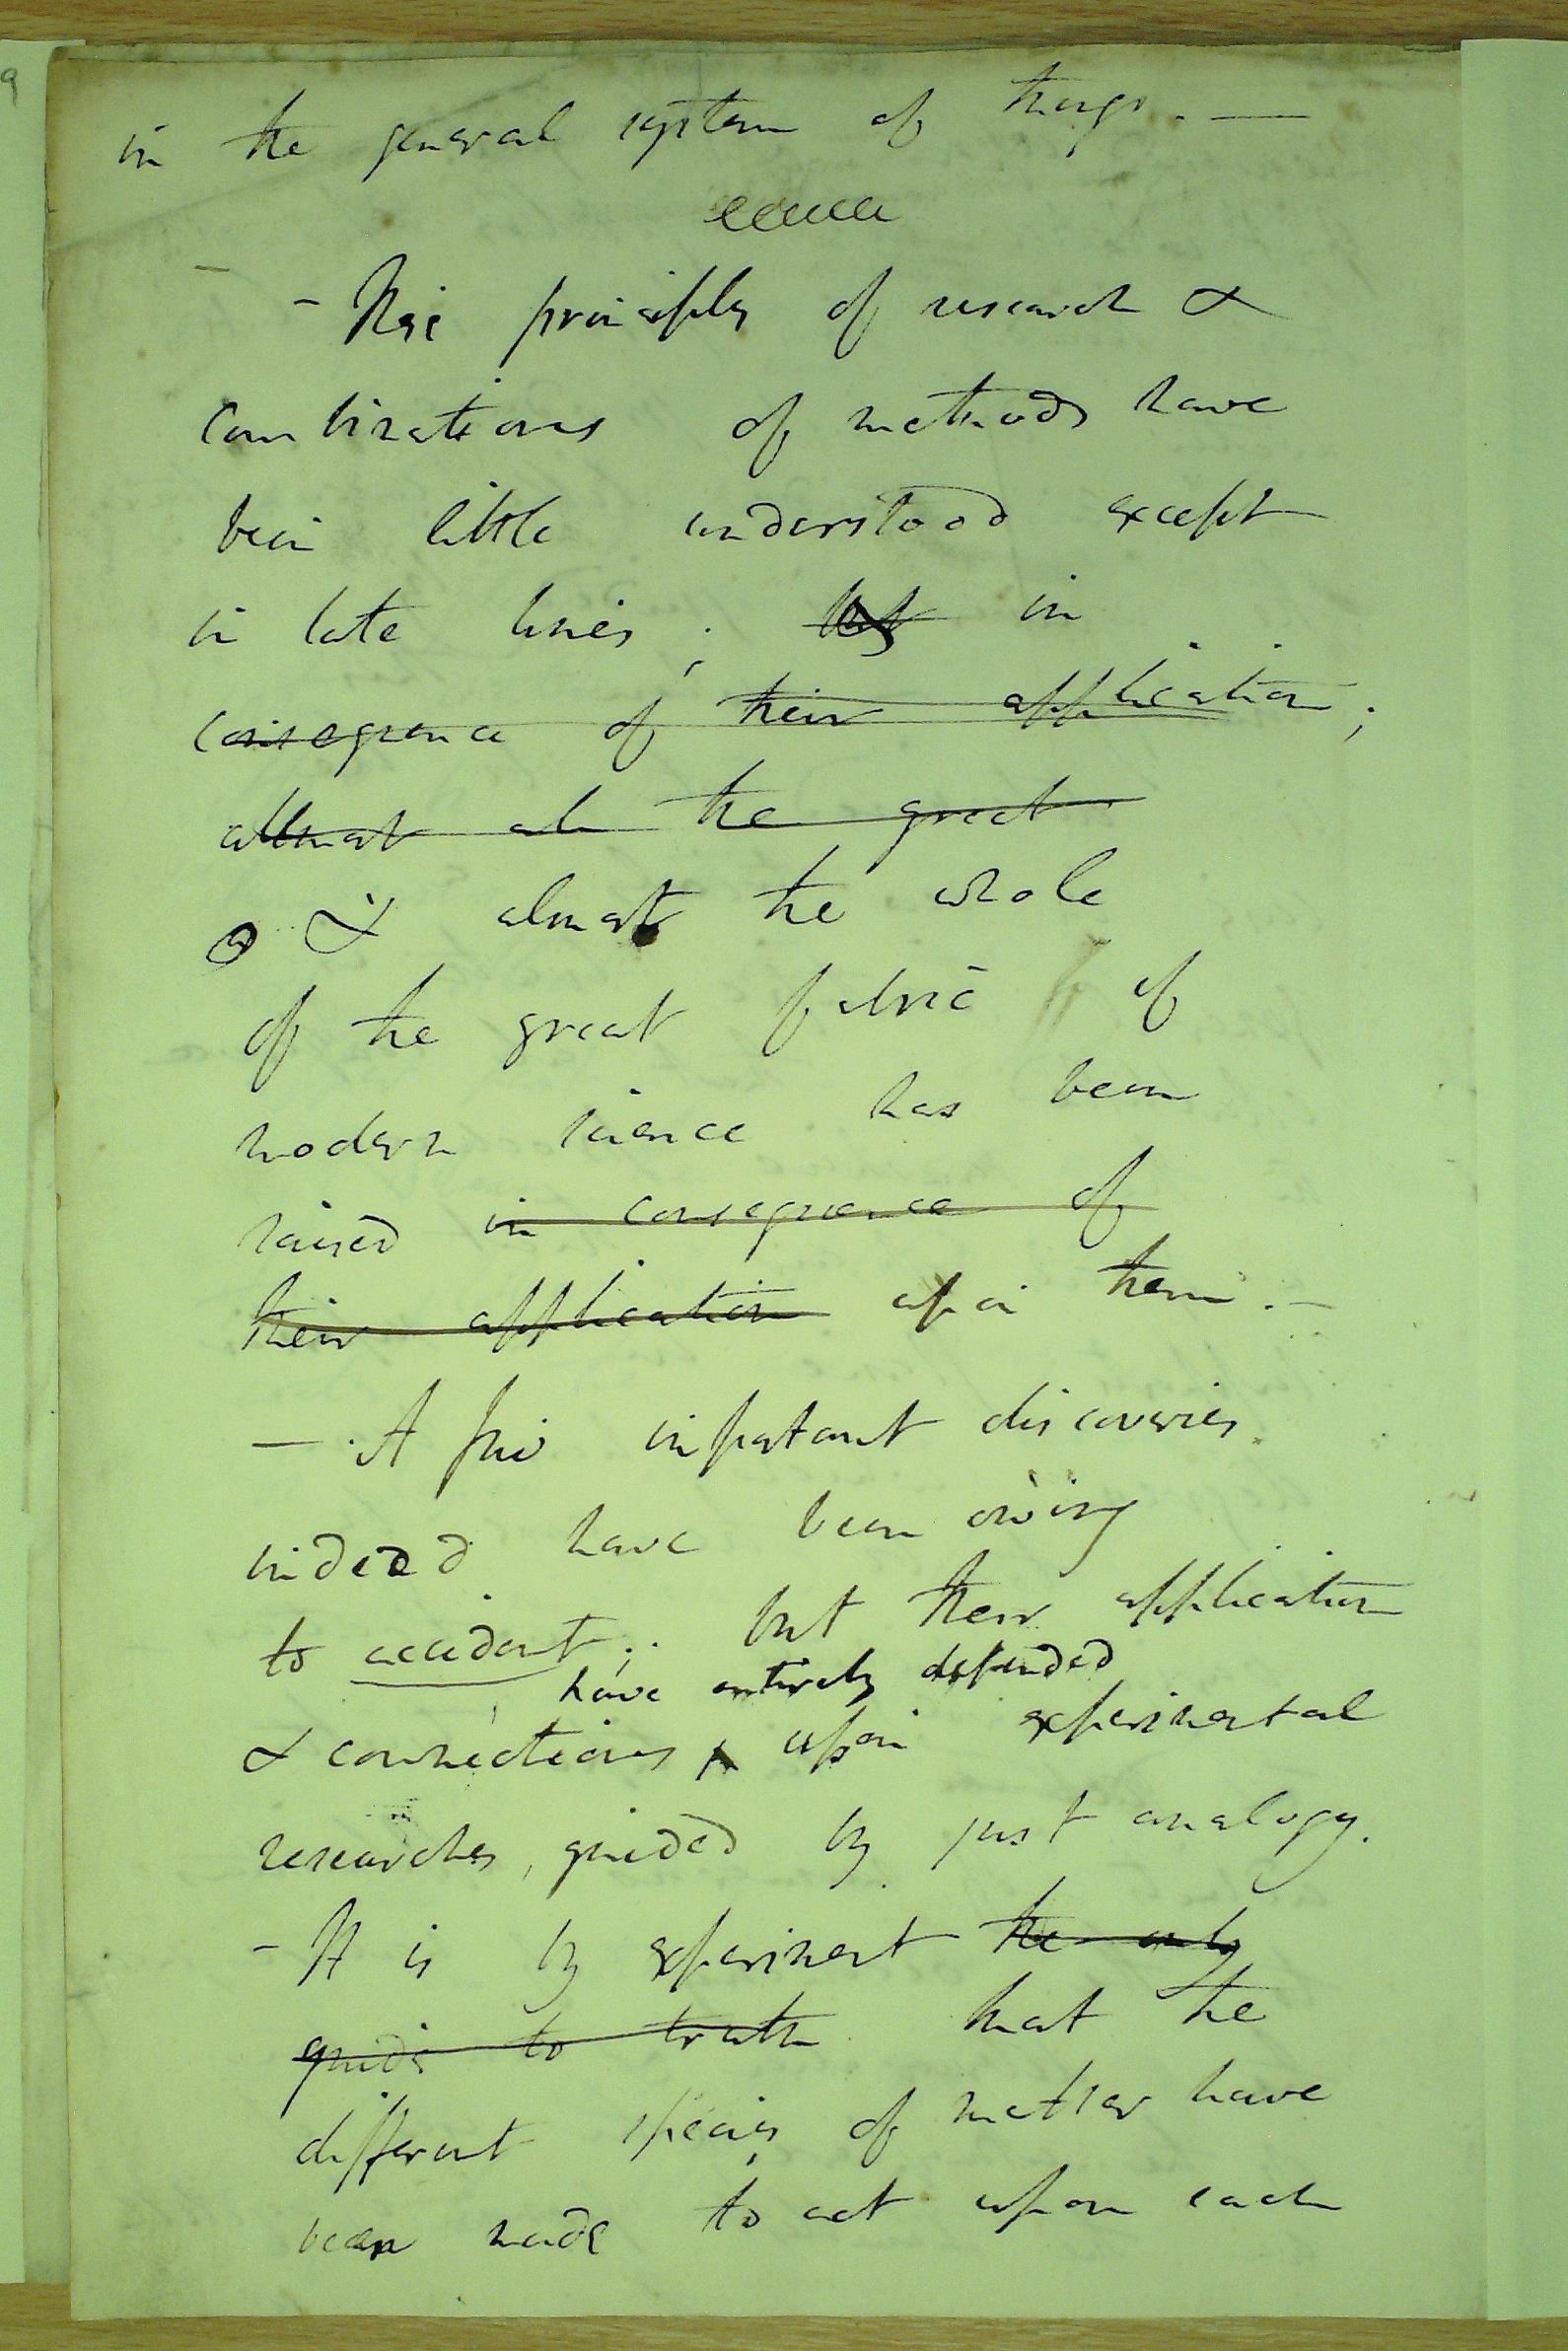 9
in the general system of things. —
- These principles of research &
combinations of methods have
been little understood except
in late times; but in
consequence of their application;
allmost all the great
& almost the whole
of the great fabric of
modern science has been
raised in consequence of
their application upon them. —
— A few important discoveries
indeed have been owing
to accident; but their application
have entirely depended
& connections upon experimental
researches, guided by just analogy.
- It is by experiment the only
guide to truth that the
different species of matter have
been made to act upon each